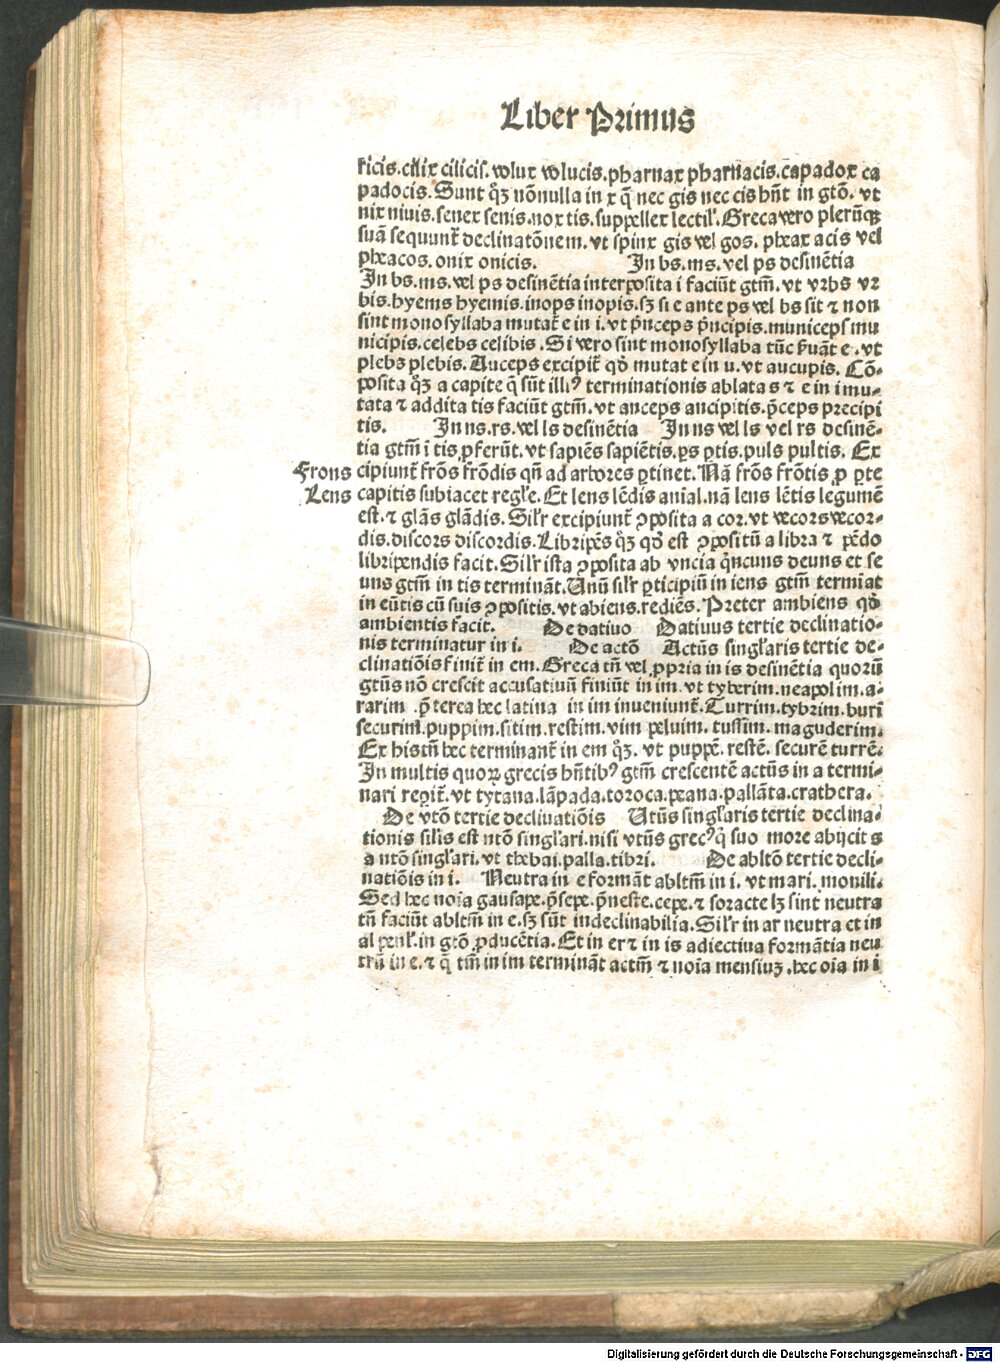 Liber Primus
ricis.cilix cilicis.volux volucis.pharnax pharnacis.cāpadox ca
padocis.Sunt qꝫ nōnulla in x q̄ nec gis nec cis hn̄t in gtō. vt
nix niuis.senex senis.nox tis.suppellex lectil'.Greca vero plerūqꝫ
suā sequunt᷑ declinatōnem.vt spinx gis vel gos. pheax acis vel
pheacos.onix onicis. In bs.ms.vel ps desinētia
In bs.ms.vel ps desinētia interposita i faciūt gtm̄. vt vrbs vr
bis.hyems hyemis.inops inopis.sꝫ si e ante ps vel bs sit ⁊ non
sint monosyllaba mutat᷑ e in i.vt p̄nceps p̄ncipis.municeps mu
nicipis.celebs celibis.Si vero sint monosyllaba tūc ẜuāt e.vt
plebs plebis.Auceps excipit᷑ qd̄ mutat e in u.vt aucupis. Cō-
posita qꝫ a capite q̄ sūt illiꝰ terminationis ablata s ⁊ e in i mu-
tata ⁊ addita tis faciūt gtm̄.vt anceps ancipitis.p̄ceps precipi
tis. In ns.rs.vel ls desinētia In ns vel ls vel rs desinē-
tia gtm̄ ī tis ꝓferūt. vt sapiēs sapiētis.ꝑs ꝑtis.puls pultis. Ex
Frons cipiunt᷑ frōs frōdis qn̄ ad arbores ꝑtinet.Nā frōs frōtis ꝓ ꝑte
Lens capitis subiacet regl'e.Et lens lēdis anial.nā lens lētis legumē
est.⁊ glās glādis. Sil'r excipiunt᷑ ꝯposita a cor.vt vecors vecor-
dis.discors discordis.Libripēs qꝫ qd̄ est ꝯpositū a libra ⁊ pēdo
libripendis facit.Sil'r ista ꝯposita ab vncia q̇ncuns deuns et se
uns gtm̄ in tis termināt.Unū sil'r ꝑticipiū in iens gtm̄ termīat
in eūtis cū suis ꝯpositis.vt abiens.rediēs.Preter ambiens qd̄
ambientis facit. De datiuo Datiuus tertie declinatio-
nis terminatur in i. De actō Actūs singl'aris tertie de-
clinatiōis finit᷑ in em.Greca tn̄ vel ꝓpria in is desinētia quorū
gtūs nō crescit accusatiuū finiūt in im.vt tyberim.neapolim.a-
rarim .p̄terea hec latina in im inueniunt᷑.Turrim.tybrim.burī
securim.puppim.sitim.restim.vim peluim. tussim. maguderim.
Ex his tn̄ hec terminant᷑ in em qꝫ. vt puppē. restē. securē turrē.
In multis quoꝝ grecis hn̄tibꝰ gtm̄ crescentē actūs in a termi-
nari reꝑit᷑.vt tytana.lāpada.toroca.peana.pallāta.crathera.
De vtō tertie decliuatiōis Utūs singl'aris tertie declina-
tionis sil'is est ntō singl'ari.nisi vtūs grecꝰ q̇ suo more abijcit s
a ntō singl'ari. vt thebai.palla.tibri. De abltō tertie decli-
natiōis in i. Neutra in e formāt abltm̄ in i. vt mari. monili.
Sed hec noīa gausape.p̄sepe.p̄neste.cepe.⁊ soracte lꝫ sint neutra
tn̄ faciūt abltm̄ in e.sꝫ sūt indeclinabilia. Sil'r in ar neutra et in
al penl'.in gtō ꝓducētia. Et in er ⁊ in is adiectiua formātia neu
trū in e.⁊ q̄ tm̄ in im termināt actm̄ ⁊ noīa mensiuꝫ.hec oīa in i
Digitalisierung gefördert durch die Deutsche Forschungsgemeinschaft - DFG